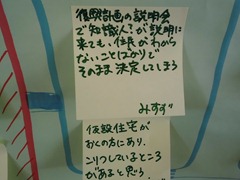 復興計画の説明会
で知識人?が説明に
来ても、住民がわから
ないことばかりで
そのまま決定してしまう
みすず
仮設住宅が
おくの方にあり、
こりつしているところ
があると思う